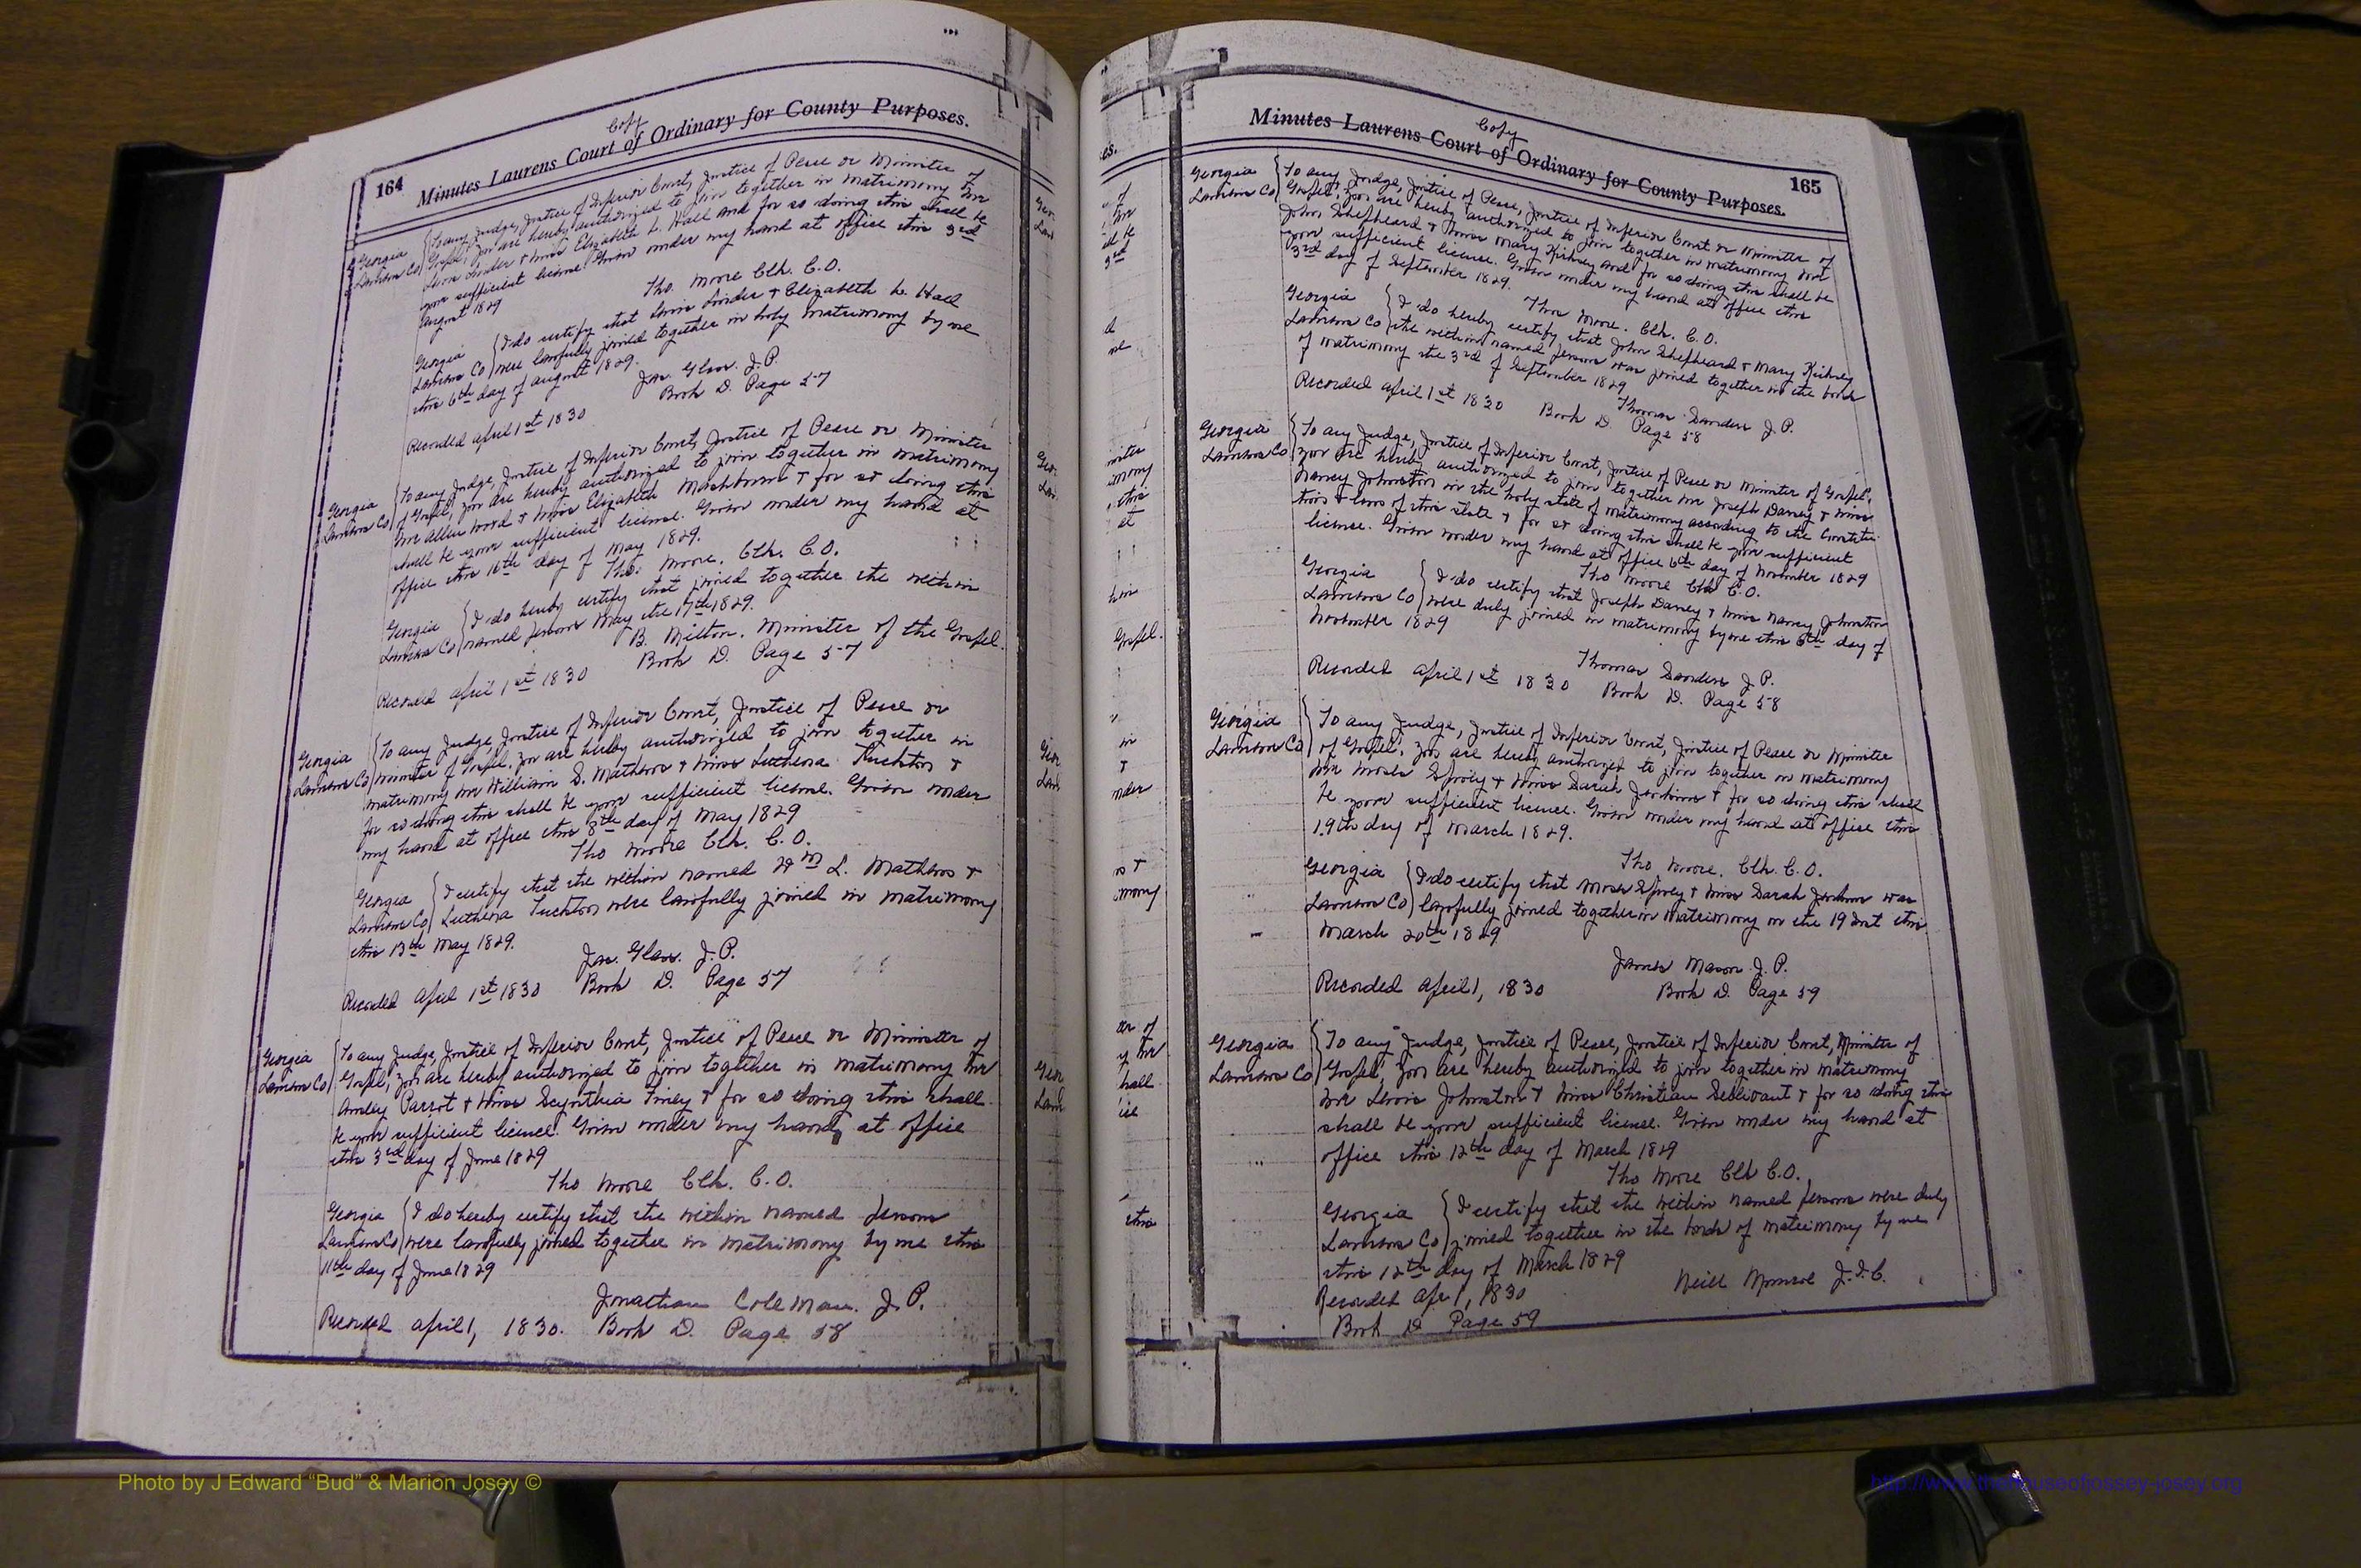 Copy
164 Minutes Laurens Court of Ordinary for County Purposes.
Georgia To any Judge, Justice of Inferior Court, Justice of Peace or Minister of
Laurens Co Gospel, you are hereby authorized to join together in matrimony Mr
Linder & Miss Elizabeth L. Hall and for so doing this shall be
your sufficient license. Given under my hand at office this 3rd
August 1829
Tho. Moore Clk. C.O.
Georgia I do certify that Linder & Elizabeth L. Hall
Laurens Co were lawfully joined together in holy matrimony by me
this 6th day of August 1829.
Jas. Glass. J.P.
Recorded April 1st 1830 Book D. Page 57
Georgia To any Judge, Justice of Inferior Court, Justice of Peace or Minister
Laurens Co of Gospel, you are hereby authorized to join together in matrimony
Mr Allen Word & Miss Elizabeth Mashburn & for so doing this
shall be your sufficient license. Given under my hand at
office this 16th day of May 1829.
Tho. Moore. Clk. C.O.
Georgia I do hereby certify that joined together the within
Laurens Co named persons May the 17th 1829.
B. Milton. Minister of the Gospel.
Recorded April 1st 1830 Book D. Page 57
Georgia To any Judge, Justice of Inferior Court, Justice of Peace or
Laurens Co Minister of Gospel, you are hereby authorized to join together in
matrimony Mr William S. Mathews & Miss Luthena &
for so doing this shall be your sufficient license. Given under
my hand at office this 8th day of May 1829
Tho Moore Clk. C.O.
Georgia I certify that the within named Wm L. Mathews &
Laurens Co Luthena were lawfully joined in matrimony
this 13th May 1829.
Jas. Glass. J.P.
Recorded April 1st 1830 Book D. Page 57
Georgia To any Judge, Justice of Inferior Court, Justice of Peace or Minister of
Laurens Co Gospel, you are hereby authorized to join together in matrimony Mr
Amley Parrot & Miss Scynthia Finey & for so doing this shall
be your sufficient licence. Given under my hand, at office
this 3rd day of June 1829
Tho Moore Clk. C.O.
Georgia I do hereby certify that the within named persons
Laurens Co were lawfully joined together in matrimony by me this
11th day of June 1829
Jonathan Coleman. J.P.
Recorded April 1, 1830. Book D. Page 58
Copy
Minutes Laurens Court of Ordinary for County Purposes. 165
Georgia To any Judge, Justice of Peace, Justice of Inferior Court or Minister of
Laurens Co Gospel, you are hereby authorized to join together in matrimony Mr
John Shepheard & Miss Mary Kirksey and for so doing this shall be
your sufficient license. Given under my hand at office this
3rd day of September 1829.
Thos Moore. Clk. C.O.
Georgia I do hereby certify that John Shepheard & Mary Kirksey
Laurens Co the within named persons was joined together in the bonds
of matrimony the 3rd of September 1829
Thomas Sanders J.P.
Recorded April 1st 1830 Book D. Page 58
Georgia To any Judge, Justice of Inferior Court, Justice of Peace or Minister of Gospel,
Laurens Co you are hereby authorized to join together Mr Joseph Darsey & Miss
Nancy Johnston in the holy state of matrimony according to the Constitu-
tion & laws of this state & for so doing this shall be your sufficient
license. Given under my hand at office 6th day of November 1829
Tho Moore Clk C.O.
Georgia I do certify that Joseph Darsey & Miss Nancy Johnston
Laurens Co were duly joined in matrimony by me this 6th day of
November 1829
Thomas Sanders J.P.
Recorded April 1st 1830 Book D. Page 58
Georgia To any Judge, Justice of Inferior Court, Justice of Peace or Minister
Laurens Co of Gospel, you are hereby authorized to join together in matrimony
Mr Moses Spivey & Miss Sarah Jenkins & for so doing this shall
be your sufficient licence. Given under my hand at office this
19th day of March 1829.
Tho Moore. Clk. C.O.
Georgia I do certify that Moses Spivey & Miss Sarah Jenkins was
Laurens Co lawfully joined together in matrimony on the 19 Inst this
March 20th 1829
James Mason J.P.
Recorded April 1, 1830 Book D. Page 59
Georgia To any Judge, Justice of Peace, Justice of Inferior Court, Minister of
Laurens Co Gospel, you are hereby authorized to join together in matrimony
Mr Lewis Johnston & Miss Christian Sellivant & for so doing this
shall be your sufficient license. Given under my hand at
office this 12th day of March 1829
Tho Moore Clk C.O.
Georgia I certify that the within named persons were duly
Laurens Co joined together in the bonds of matrimony by me
this 12th day of March 1829
Neill Monroe J.I.C.
Recorded Apr 1, 1830
Book D Page 59
Photo by J Edward “Bud” & Marion Josey ©
http://www.thehouseofjossey-josey.org